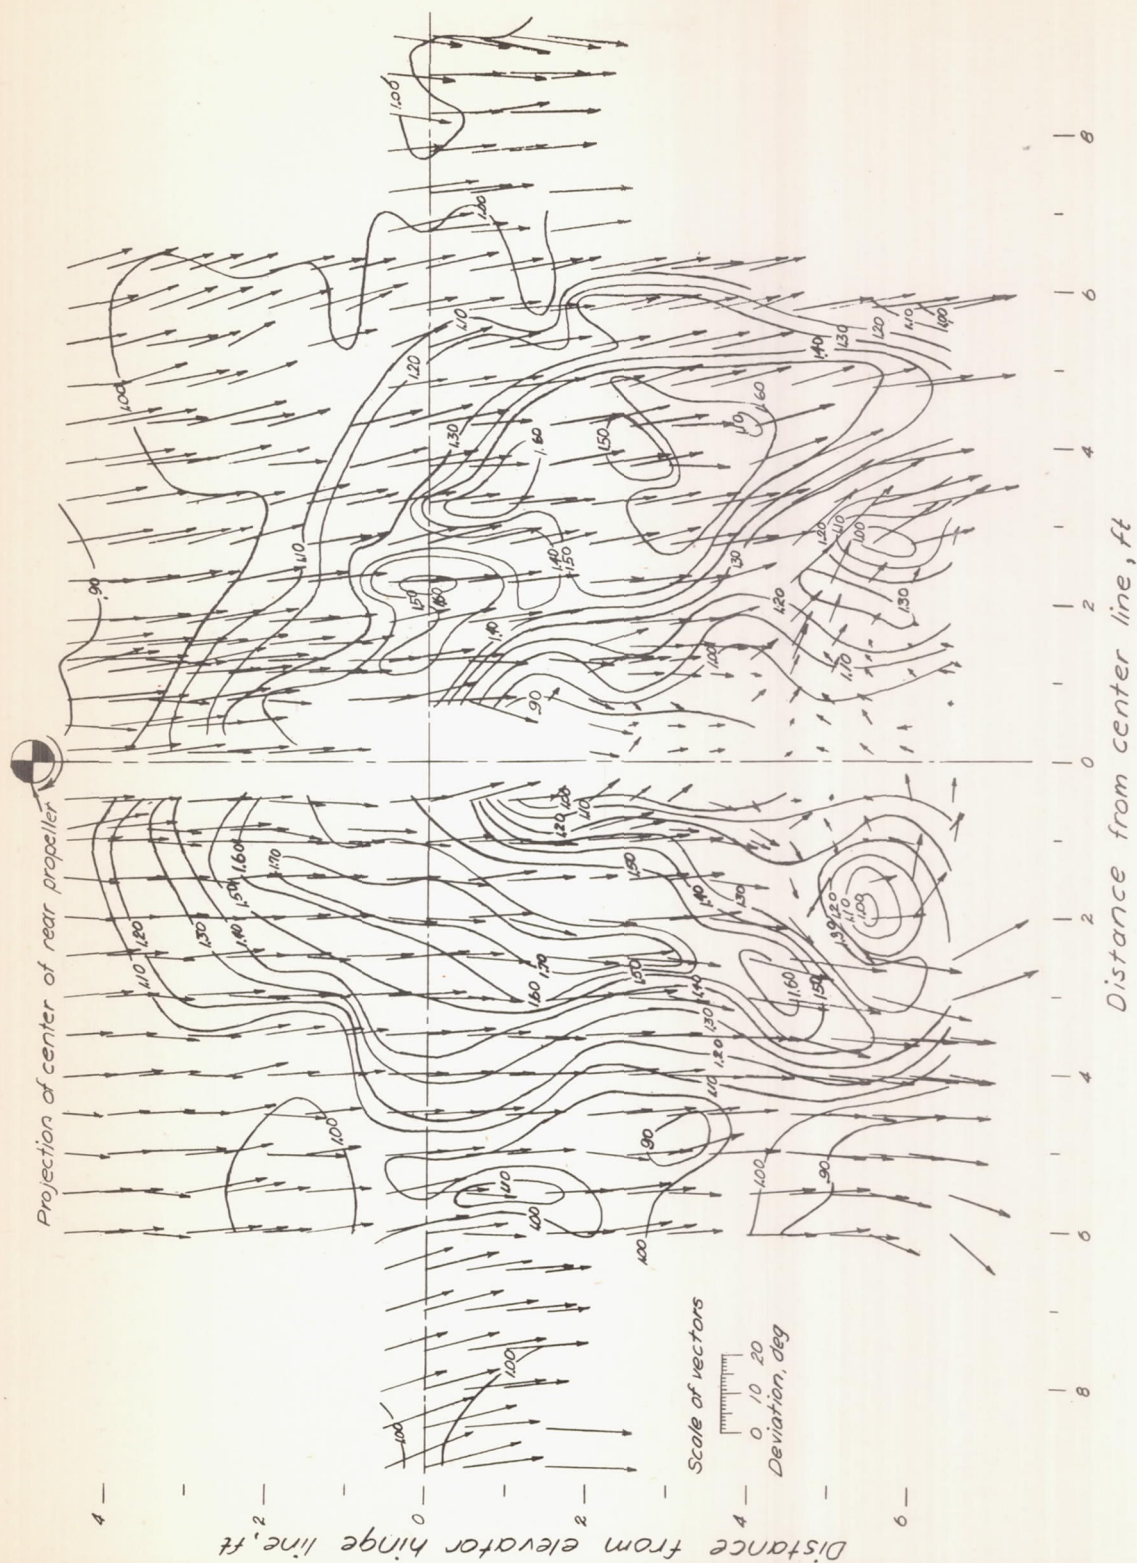 Projection of center of rear propeller
Distance from elevator hinge line, ft
4
2
0
2
4
6
Distance from center line, ft
8
6
4
2
0
2
4
6
8
Scale of vectors
0 10 20
Deviation, deg
1.00
1.00
1.00
.90
1.10
1.10
1.20
1.30
1.60
1.50
1.60
1.40
1.50
1.50
1.60
1.40
1.30
1.20
1.10
1.30
1.20
1.00
1.20
1.10
1.00
1.30
1.10
.90
1.10
1.20
1.30
1.40
1.50
1.60
1.70
1.20
1.00
1.10
1.50
1.40
1.30
1.60
1.50
1.40
1.30
1.20
1.10
1.60
1.50
1.30
1.20
1.10
1.00
1.00
1.00
.90
1.00
1.00
.90
1.00
1.00